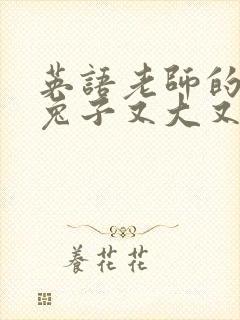 英語老師的
兔子又大又
養花花